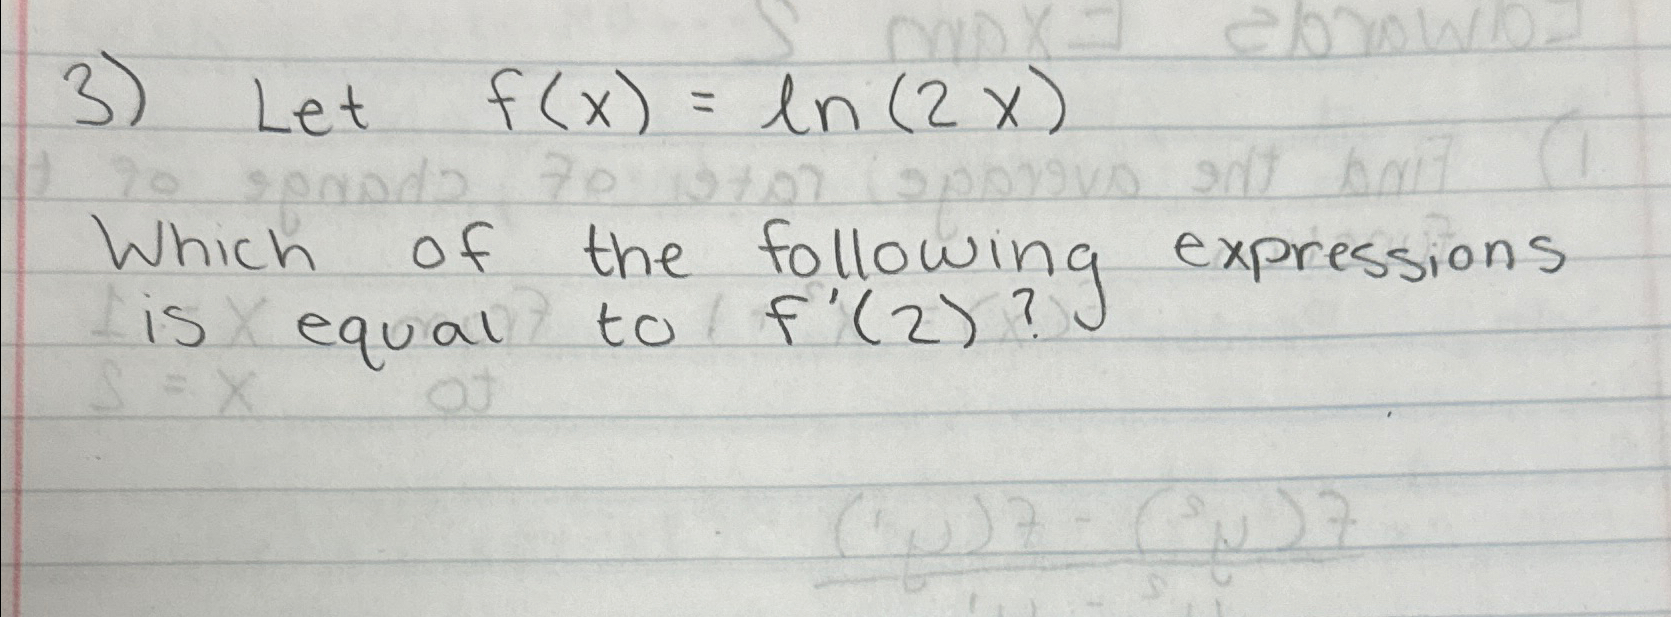 3) Let f(x) = ln(2x)
Which of the following expressions
is equal to f'(2)?